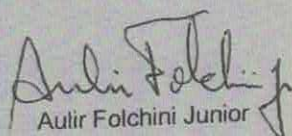 Aulir Folchini Jr
Aulir Folchini Junior